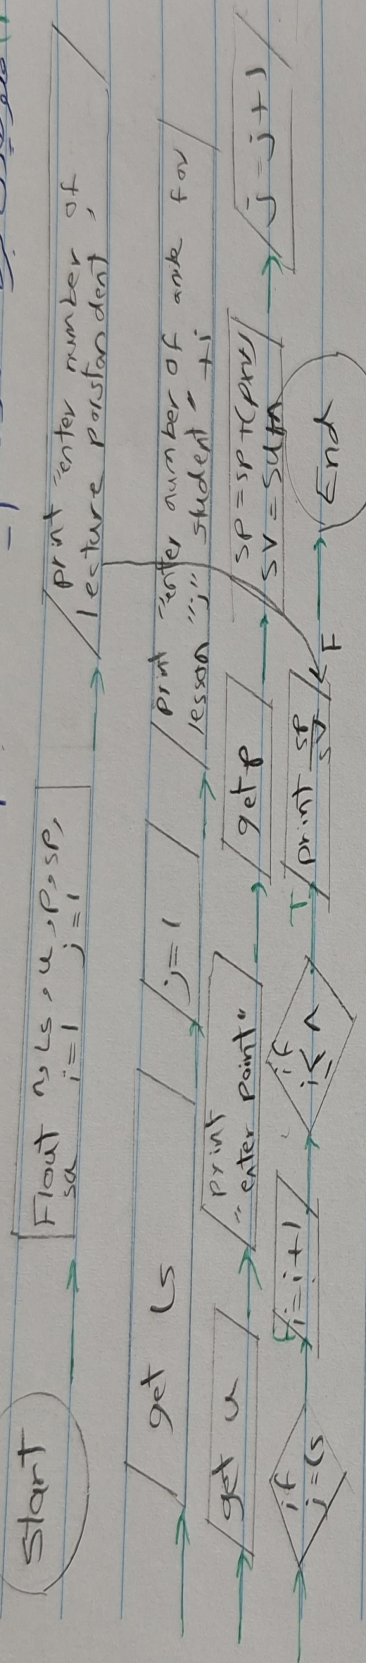 Start
Float n, Ls, u, p, sp,
su i=1 j=1
print "enter number of
lecture
get Ls
j=1
print "enter number of for
lesson "j" student" +i
get u
print
"enter point"
get p
sp=sp+(p*u)
sv=su+u
j=j+1
if
j=Ls
i=i+1
if
i≤n
T
print sp
sv
F
End